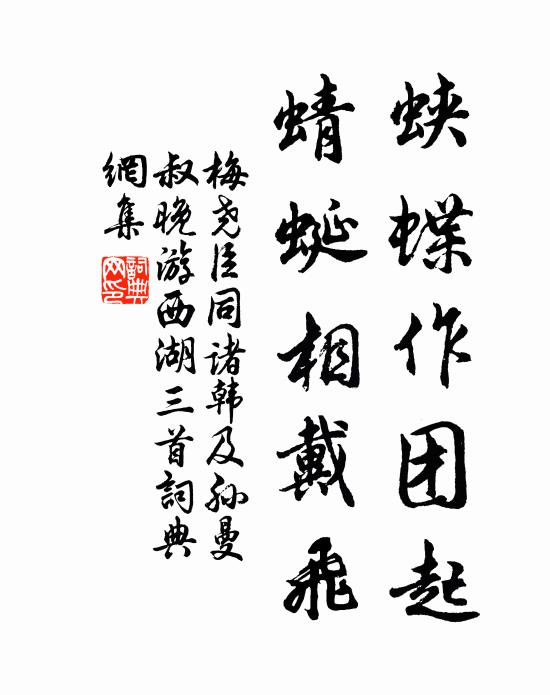 蛺蝶作团起
蜻蜒相戴飛
梅尧臣同诸韩及孙曼
叔晚游西湖三首詞典
網集
詞典
网印